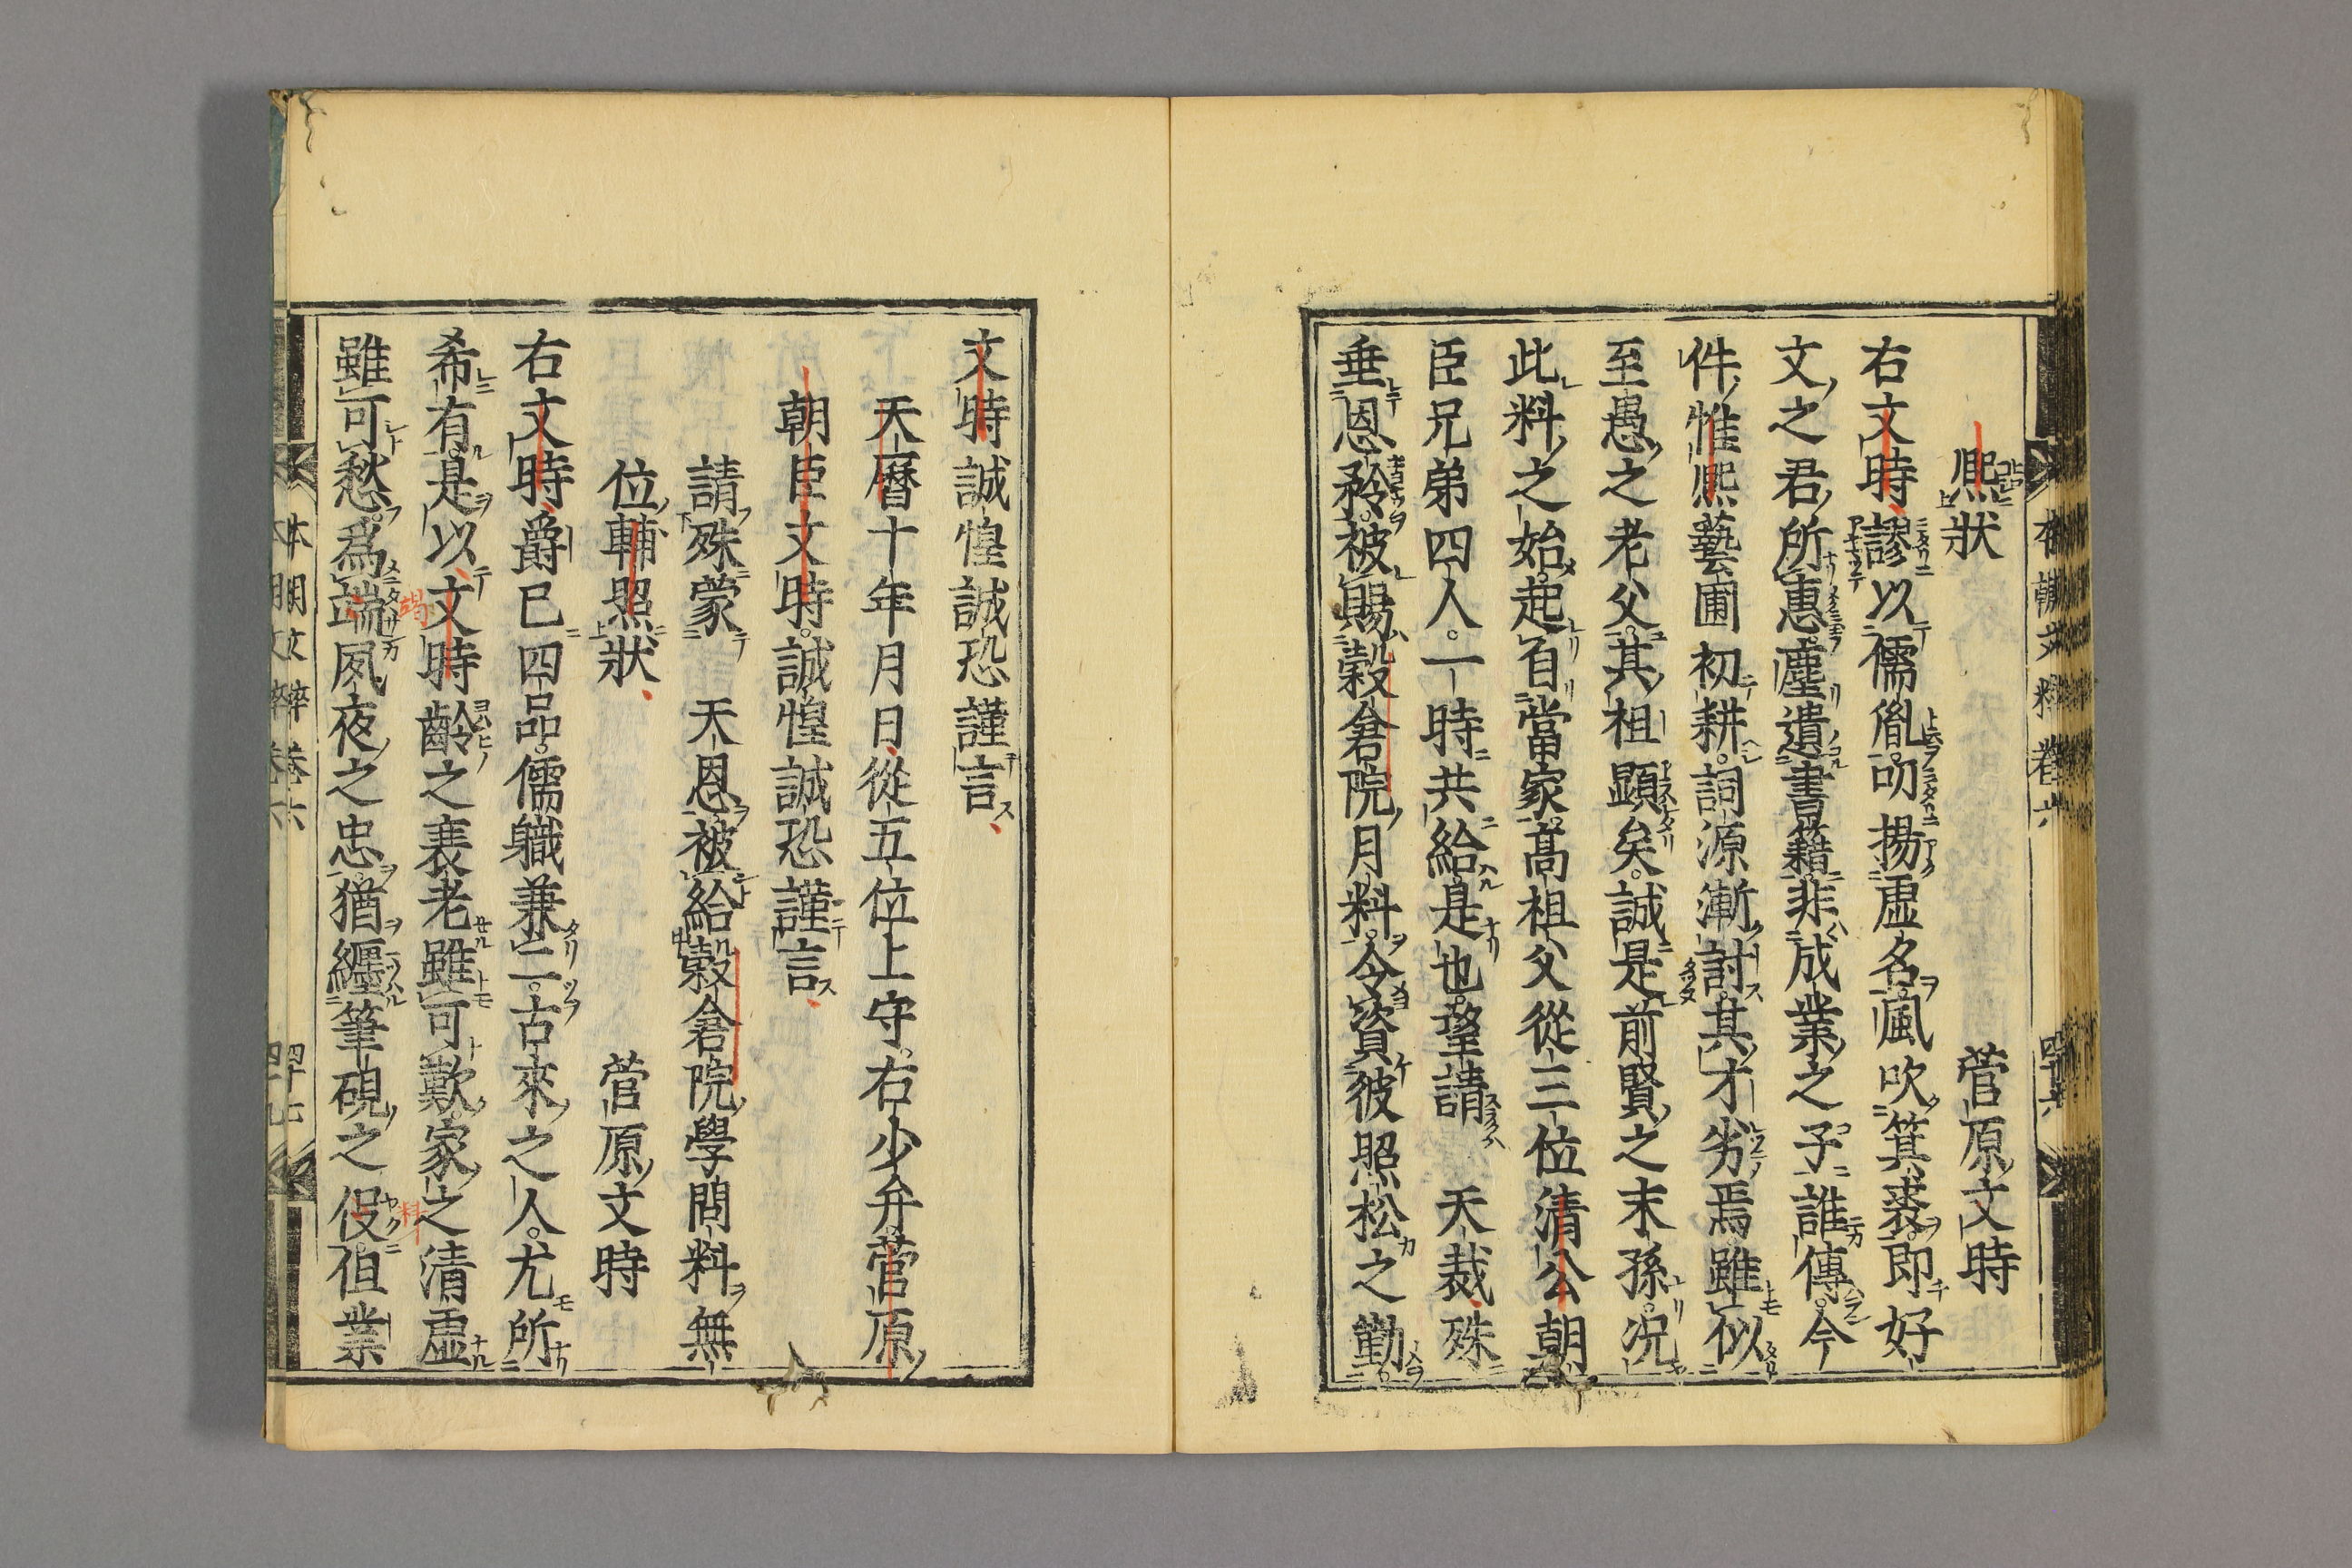 熈狀　菅原文時
右文時謬以儒胤叨揚虛名諷吹箕裘即好
文之君所惠塵遺書籍非成業之子誰傳今
件惟熈藝圃初耕詞源漸討其才劣焉雖似
至愚之老父其祖顕矣誠是前賢之末孫况
此料之始起自當家高祖父從三位清公朝
臣兄弟四人一時共給是也望請　天裁殊
垂恩矜被賜穀倉院月料令資彼照松之勤
文時誠惶誠恐謹言
天曆十年月日從五位上守右少弁菅原
朝臣文時誠惶誠恐謹言
請殊蒙　天恩被給穀倉院學問料無
位輔照狀　菅原文時
右文時爵已四品儒職兼二古來之人尤所
希有是以文時齡之衰老雖可歎家之清虛
雖可愁爲端夙夜之忠猶纏筆硯之役但業
竭
料
本朝文粹卷六
四十六
本朝文粹卷六
四十七